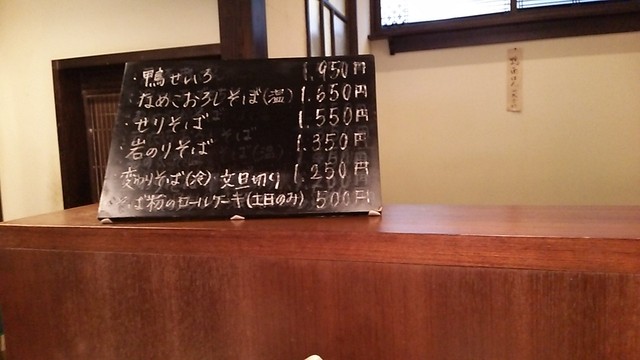 ・鴨せいろ 1.950円
・なめこおろしそば(温) 1.650円
・せりそば 1.550円
・岩のりそば 1.350円
変わりそば(冷)・文旦切り 1.250円
そば粉のロールケーキ(土日のみ) 500円